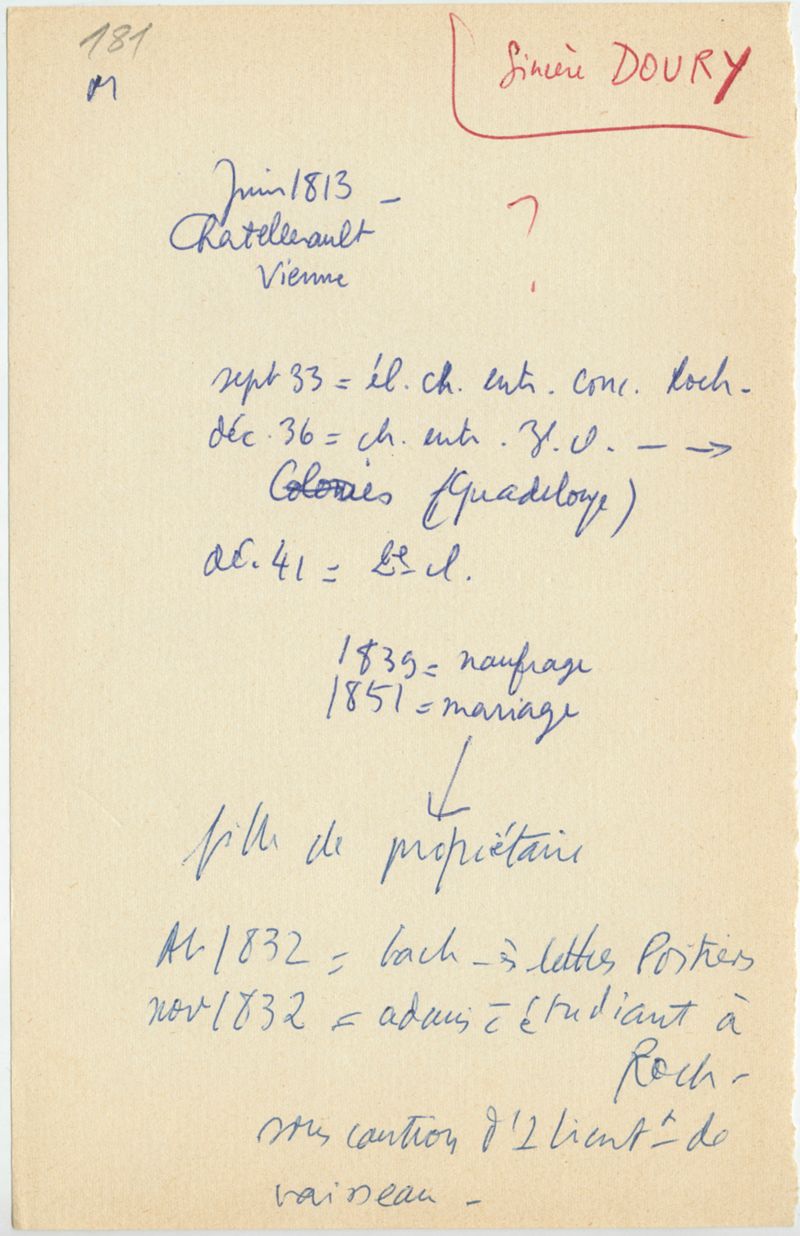 181
M
Sincère DOURY
Juin 1813 -
Chatellerault
Vienne
?
sept 33 = él. ch. entr. conc. Roch-
déc. 36 = ch. entr. 3e cl. - →
Colonies (Guadeloupe)
déc. 41 = 2e cl.
1839 = naufrage
1851 = mariage
↓
fille de propriétaire
1832 = bach - ès lettres Poitiers
nov 1832 = admis = étudiant à
Roch -
sous caution d'1 lieutt de
vaisseau -